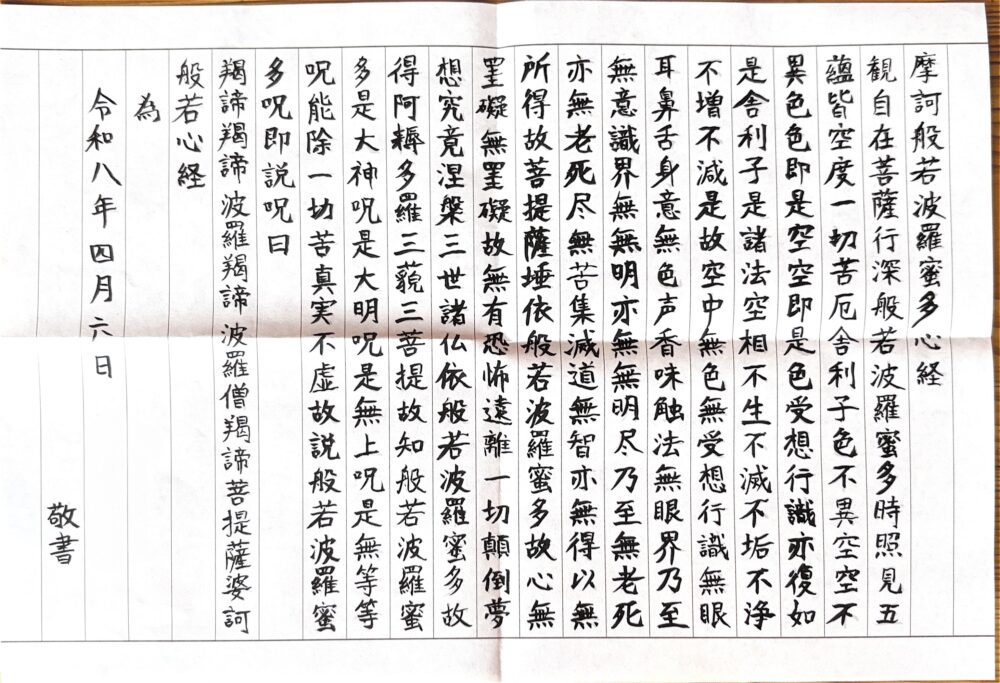 摩訶般若波羅蜜多心経
観自在菩薩行深般若波羅蜜多時照見五
蘊皆空度一切苦厄舎利子色不異空空不
異色色即是空空即是色受想行識亦復如
是舎利子是諸法空相不生不滅不垢不浄
不増不減是故空中無色無受想行識無眼
耳鼻舌身意無色声香味触法無眼界乃至
無意識界無無明亦無無明尽乃至無老死
亦無老死尽無苦集滅道無智亦無得以無
所得故菩提薩埵依般若波羅蜜多故心無
罣礙無罣礙故無有恐怖遠離一切顛倒夢
想究竟涅槃三世諸仏依般若波羅蜜多故
得阿耨多羅三藐三菩提故知般若波羅蜜
多是大神呪是大明呪是無上呪是無等等
呪能除一切苦真実不虚故説般若波羅蜜
多呪即説呪曰
羯諦羯諦波羅羯諦波羅僧羯諦菩提薩婆訶
般若心経
為
令和八年四月六日
敬書